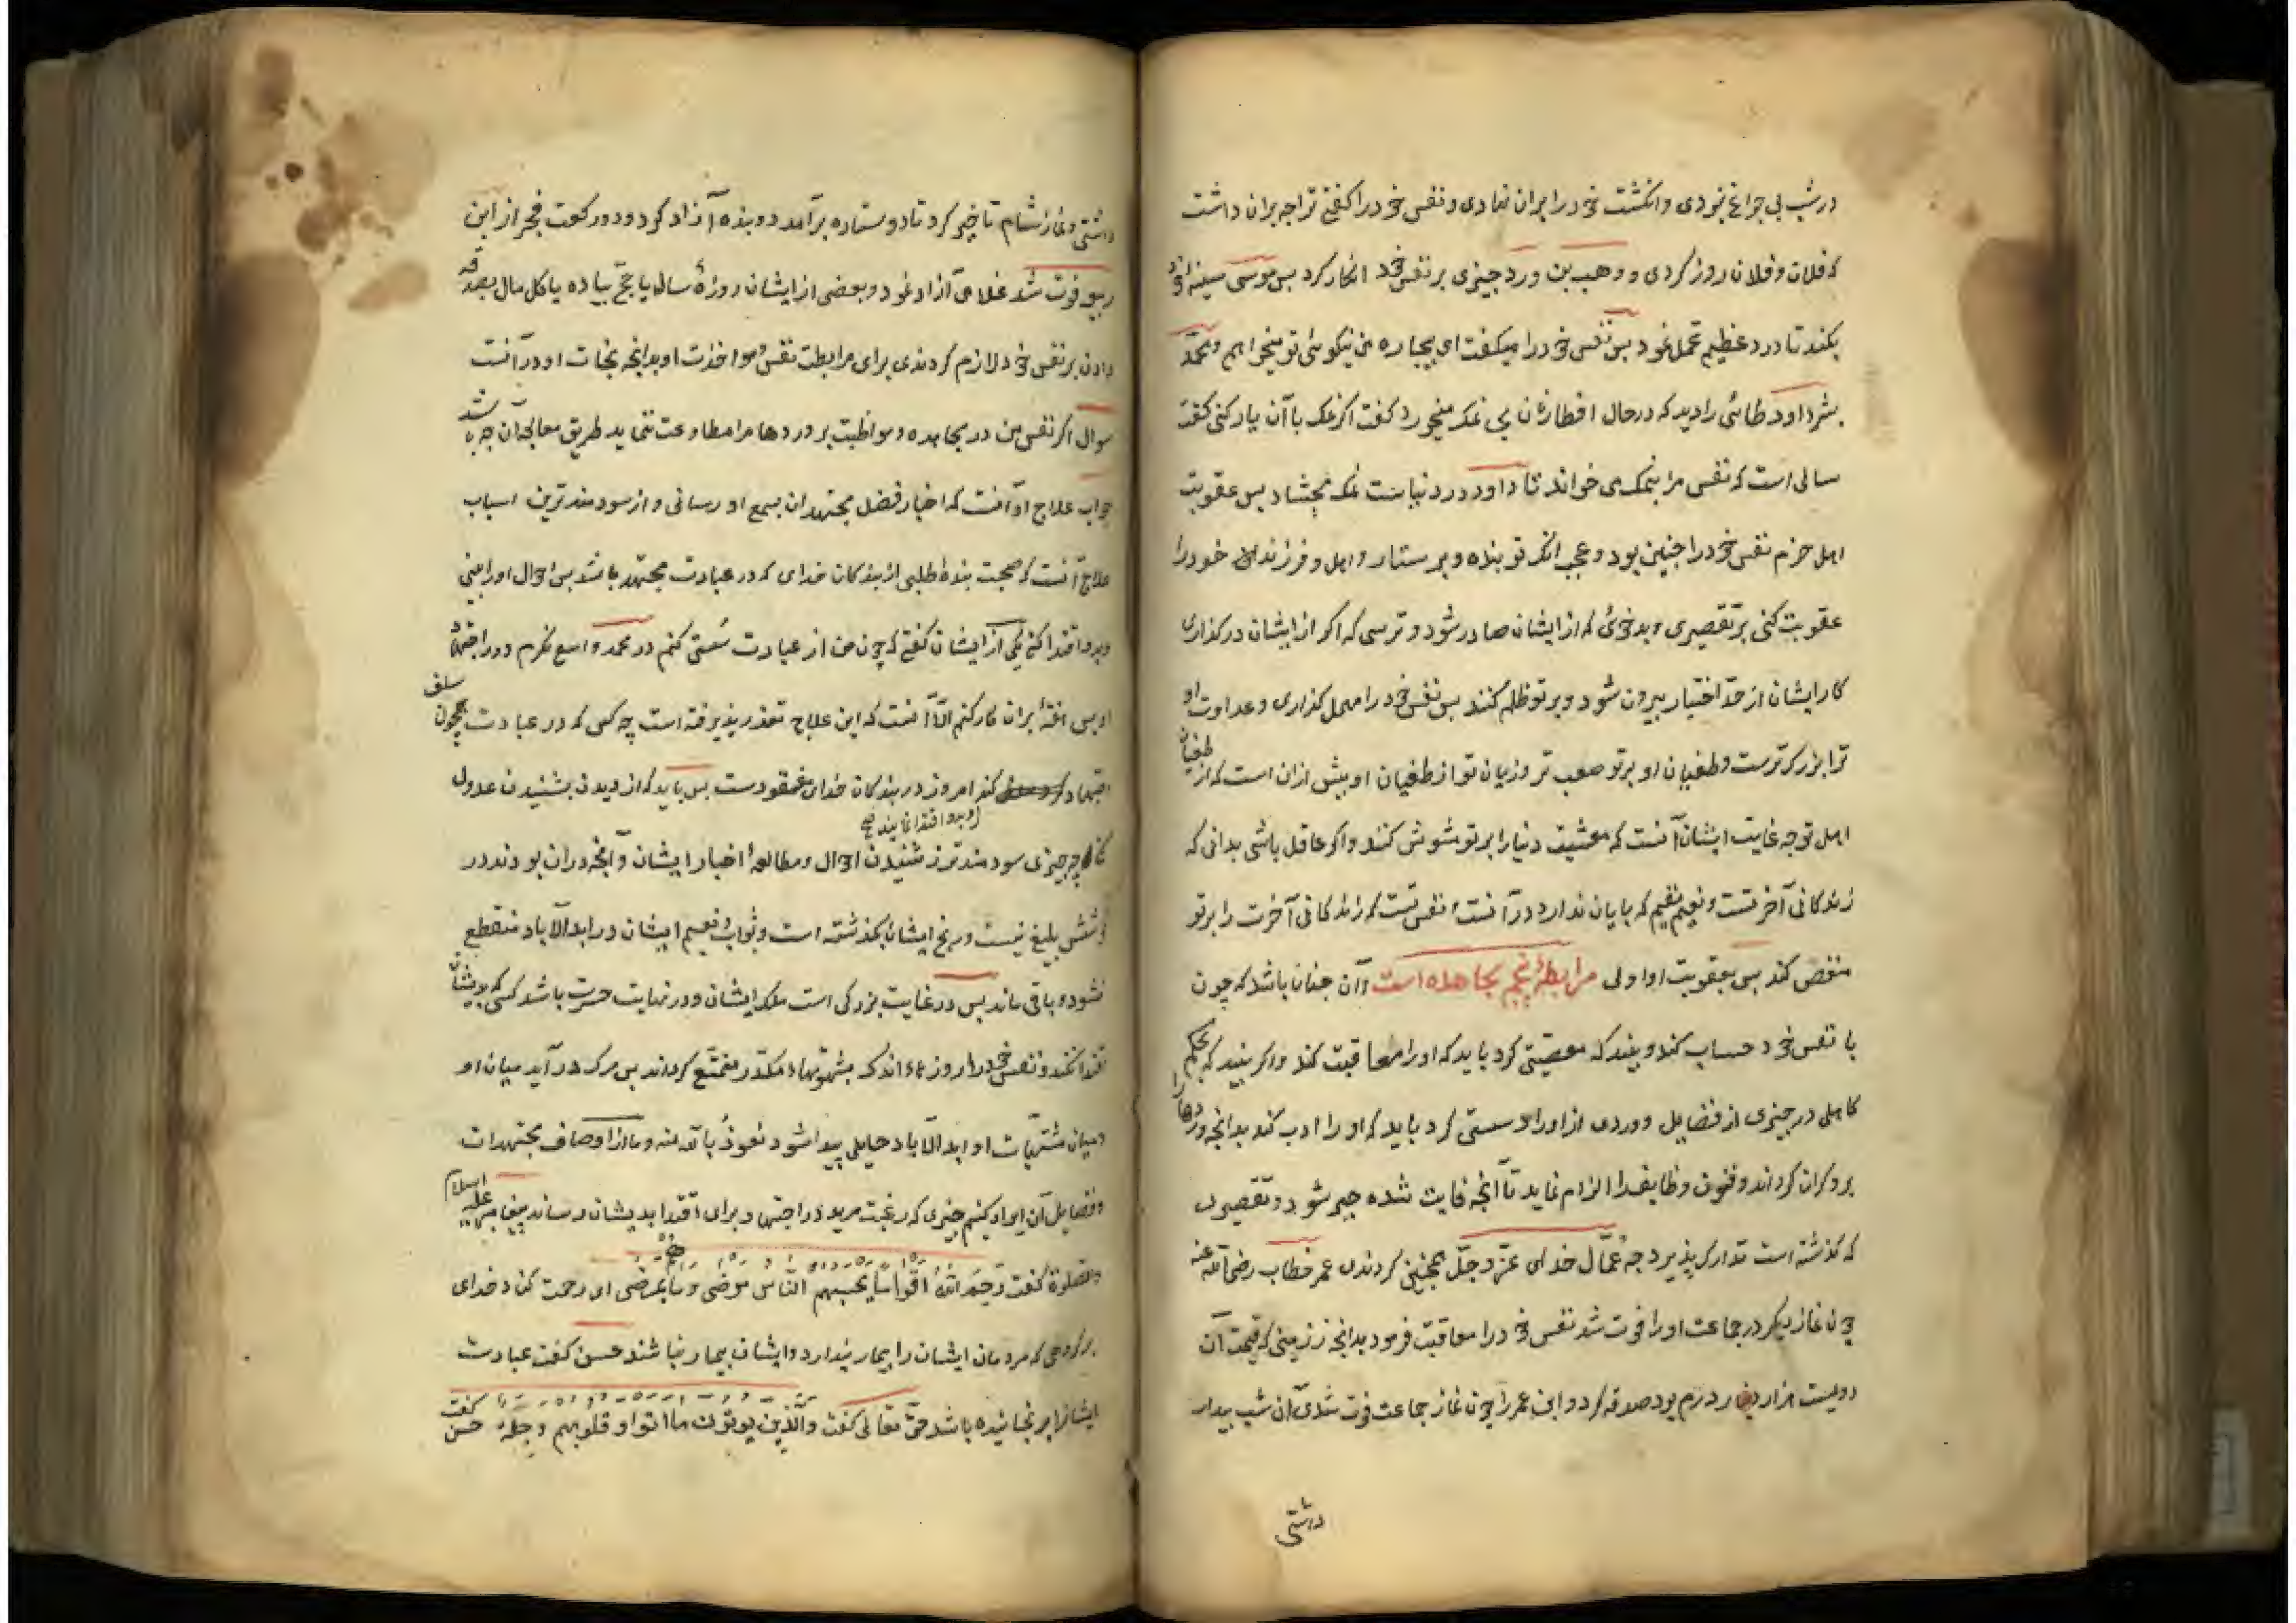 در شب بی چراغ نبودی و انگشت خود را بران نهادی و نفس خود را گفتی ترا چه بران داشت
که فلان و فلان روز کردی و وهب بن ورد چیزی بر نفس خود انکار کرد پس موی سینه خود
بکند تا درد عظیم تحمل نمود پس نفس خود را میگفت ای بیچاره من نیکوئی تو میخواهم و محمد
بشر داود طائی را دید که در حال افطار نان بی نمک میخورد گفت اگر نمک با آن یار کنی گفت
سالی است که نفس مرا بنمک می خواند تا داود در دنیاست نمک نچشاد پس عقوبت
اهل حزم نفس خود را چنین بود و عجب انکه تو بنده و پرستار و اهل و فرزندان خود را
عقوبت کنی بر تقصیری و بدخوئی که از ایشان صادر شود و ترسی که اگر از ایشان درگذاری
کار ایشان از حد اختیار بیرون شود و بر تو ظلم کنند پس نفس خود را مهمل گذاری و عداوت او
ترا بزرگ ترست و طغیان او بر تو صعب تر و زیان تو از طغیان او بیش ازان است که از طغیان
اهل تو چه غایت ایشان آنست که معشیت دنیا را بر تو مشوش کنند و اگر عاقل باشی بدانی که
زندگانی آخرتست و نعیم مقیم که پایان ندارد در آنست و نفس تست که زندگانی آخرت را بر تو
منغص کند پس بعقوبت او اولی مرابطۀ پنجم مجاهده است و آن چنان باشد که چون
با نفس خود حساب کند و بیند که معصیتی کرد باید که او را معاقبت کند و اگر بیند که بحکم
کاهلی در چیزی از فضایل و وردی از اوراد سستی کرد باید که او را ادب کند بدانچه وردها را
برو گران گرداند و فنون وظایف را الزام نماید تا آنچه فایت شده جبر شود و تقصیری
که گذشته است تدارک پذیرد چه عمال خدای عز و جل همچنین کردندی عمر خطاب رضی الله عنه
چون نماز دیگر در جماعت او را فوت شد نفس خود را معاقبت فرمود بدانچه زمینی که قیمت آن
دویست هزار درم بود صدقه کرد و ابن عمر را چون نماز جماعت فوت شدی آن شب بیدار
داشتی
داشتی و نماز شام تاخیر کرد تا دو ستاره برآمد دو بنده آزاد کرد و دو رکعت فجر از ابن
ربیع فوت شد غلامی آزاد نمود و بعضی از ایشان روزۀ سال یا حج پیاده یا کل مال بصدقه
دادن بر نفس خود لازم کردندی برای مرابطت نفس و مواخذت او بدانچه نجات او در آنست
سوال اگر نفس من در مجاهده و مواظبت بر وردها مرا مطاوعت ننماید طریق معالجه آن چه باشد
جواب علاج او آنست که اخبار فضل مجتهدان بسمع او رسانی و از سودمندترین اسباب
علاج آنست که صحبت بنده اطلبی از بندگان خدای که در عبادت مجتهد باشد پس احوال او را بینی
و بدو اقتدا کنی یکی از ایشان گفتی که چون من از عبادت سستی کنم در محمد واسع نگرم و در اجتهاد
او پس هفتۀ بران کار کنم الا آنست که این علاج تعذر پذیرفته است چه کسی که در عبادت همچون سلف
اجتهاد کند امروز در بندگان خدای مفقودست پس باید که از دیدن بشنیدن عدول
و بدو اقتدا نمایند صح
کند چه چیزی سودمندتر از شنیدن احوال و مطالعۀ اخبار ایشان و آنچه دران بودند در
کوشش بلیغ نیست و رنج ایشان بگذشته است و ثواب و نعیم ایشان در ابد الآباد منقطع
نشود و باقی ماند پس در غایت بزرگی است ملک ایشان و در نهایت حسرت باشد کسی که بدیشان
اقتدا نکند و نفس خود را روزهاء اندک بشهوتهاء مکدر متمتع گرداند پس مرگ در آید میان او
و میان مشتهیات او ابد الآباد حایلی پیدا شود نعوذ بالله منه و ما از اوصاف مجتهدان
و فضایل آن ایراد کنیم چیزی که رغبت مرید در اجتهاد برای اقتدا بدیشان رساند پیغامبر علیه السلام
والصلوة گفت رحم الله اقواما یحسبهم الناس مرضی و ما هم بمرضی ای رحمت کناد خدای
بر گروهی که مردمان ایشان را بیمار پندارد و ایشان بیمار نباشند حسن گفت عبادت
ایشانرا برنجانیده باشد حق تعالی گفت والذین یوتون ما اتوا و قلوبهم وجلة حسن گفت